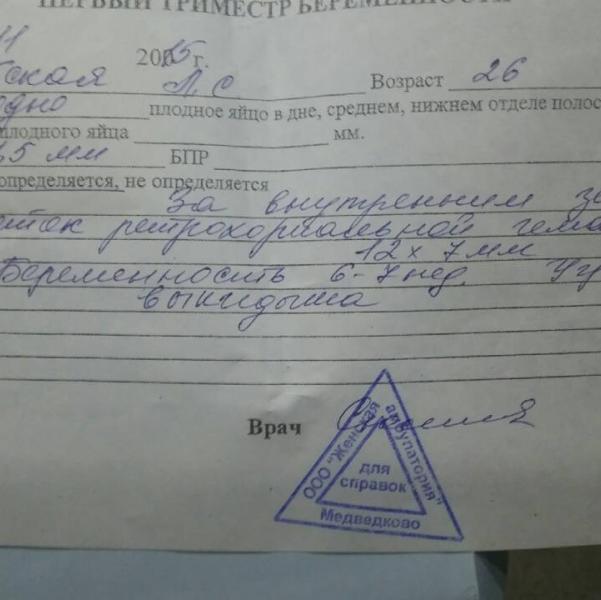 ПЕРВЫЙ ТРИМЕСТР БЕРЕМЕННОСТИ
11 2015 г.
ская Л.С. Возраст 26
одно плодное яйцо в дне, среднем, нижнем отделе полос
плодного яйца мм.
5 мм БПР
определяется, не определяется
За внутренним зе
сток ретрохориальной гема
12х7мм
Беременность 6-7 нед. Уг
выкидыша
Врач
ООО "Женская амбулатория"
для справок
Медведково